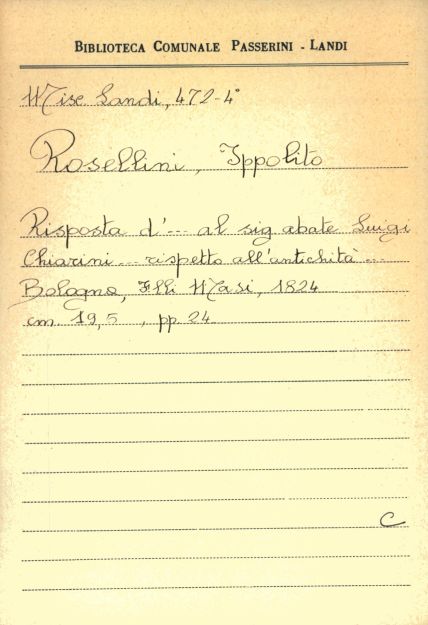 BIBLIOTECA COMUNALE PASSERINI - LANDI
Misc Landi, 472-4°
Rosellini, Ippolito
Risposta d'--- al sig abate Luigi
Chiarini --- rispetto all'antichità ---
Bologna, F.lli Masi, 1824
cm 19,5 , pp 24
C